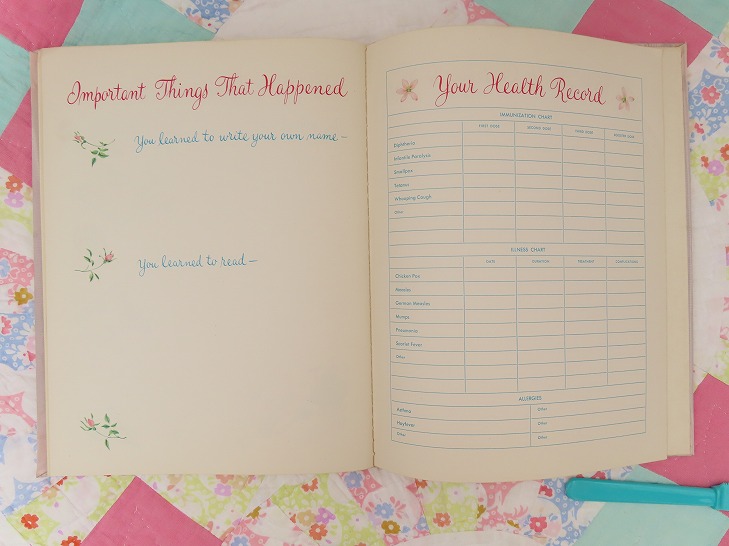 Important Things That Happened
You learned to write your own name —
You learned to read —
Your Health Record
IMMUNIZATION CHART
FIRST DOSE SECOND DOSE THIRD DOSE BOOSTER DOSE
Diphtheria
Infantile Paralysis
Smallpox
Tetanus
Whooping Cough
Other
ILLNESS CHART
DATE DURATION TREATMENT COMPLICATIONS
Chicken Pox
Measles
German Measles
Mumps
Pneumonia
Scarlet Fever
Other
ALLERGIES
Asthma Other
Hayfever Other
Other Other